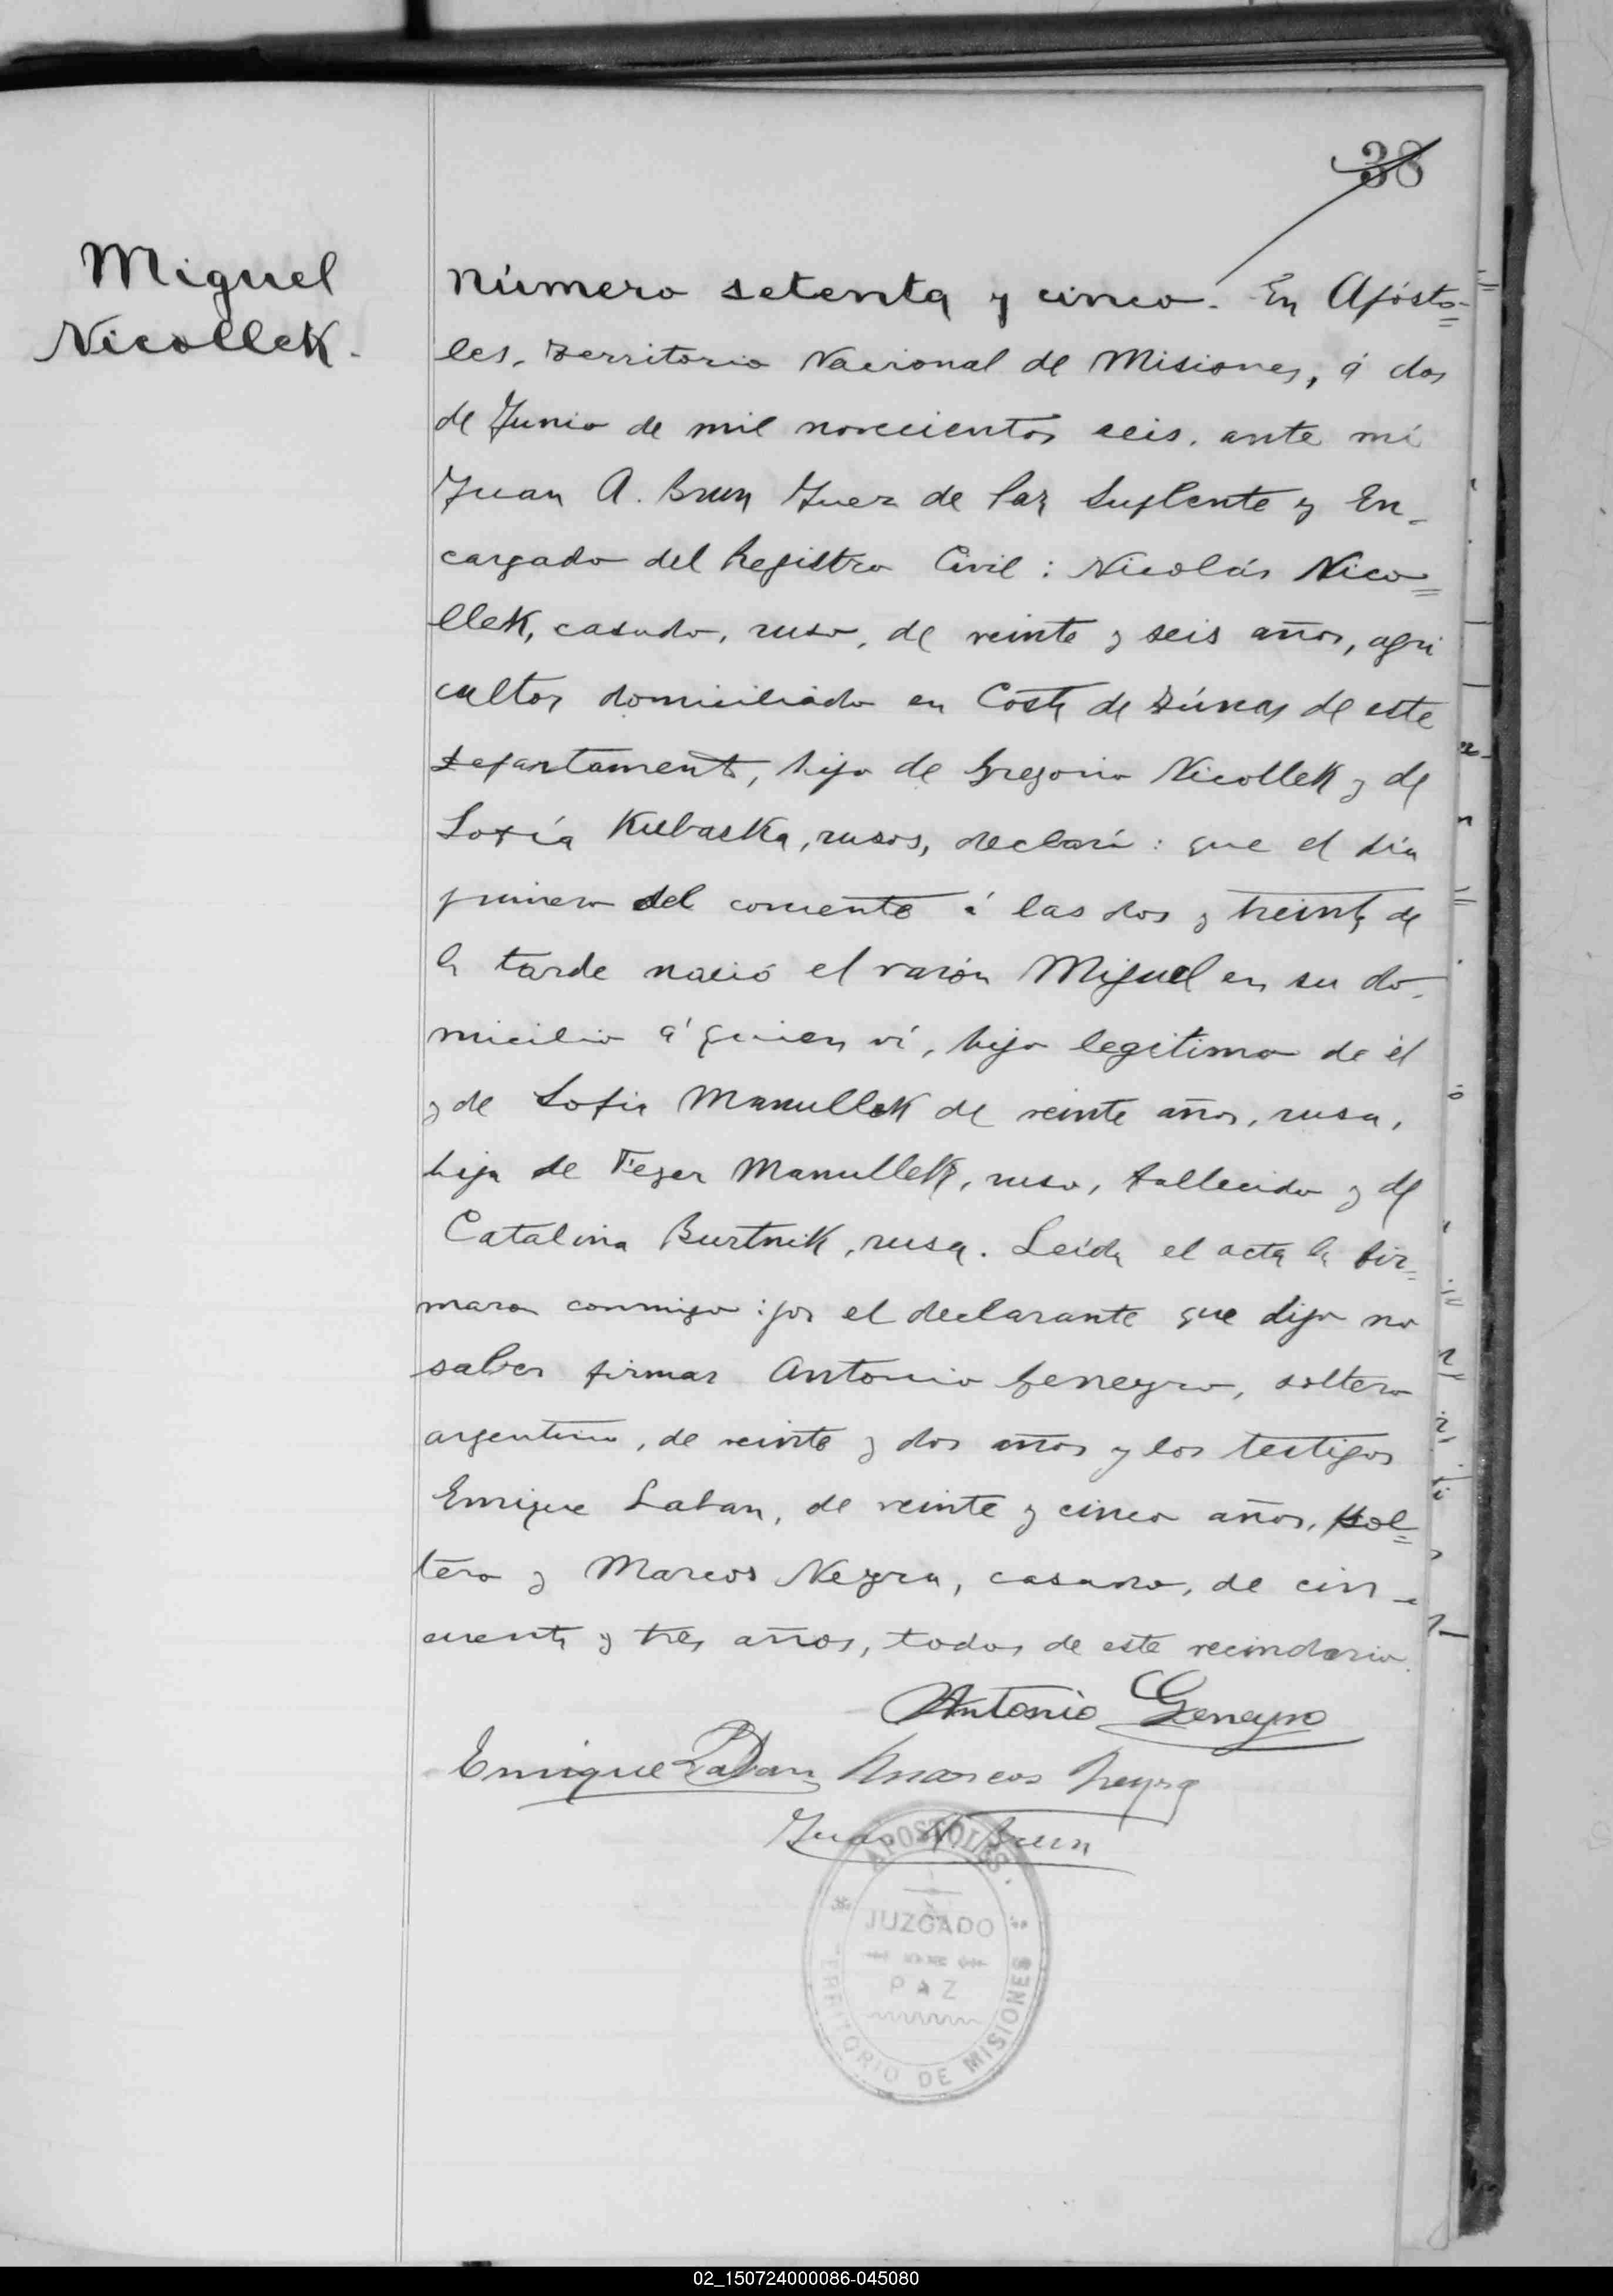 38
Miguel
Nicollek.
Número setenta y cinco. En Apósto=
les, Territorio Nacional de Misiones, á dos
de Junio de mil novecientos seis, ante mí
Juan A. Brun Juez de Paz Suplente y En-
cargado del Registro Civil: Nicolás Nico=
llek, casado, ruso, de veinte y seis años, agri
cultor domiciliado en Costa de de este
Departamento, hijo de Gregorio Nicollek y de
Sofía Kubaska, rusos, declaró: que el día
primero del corriente á las dos y treinta de
la tarde nació el varón Miguel en su do-
micilio á quien ví, hijo legitimo de él
y de Sofia Manullek de veinte años, rusa,
hija de Manullek, ruso, fallecido y de
Catalina Burtnik, rusa. Leida el acta la fir=
maron conmigo: por el declarante que dijo no
saber firmar Antonio Geneyro, soltero
argentino, de veinte y dos años y los testigos
Enrique Laban, de veinte y cinco años, sol=
tero y Marcos Neyra, casado, de cin-
cuenta y tres años, todos de este vecindario.
Antonio Geneyro
Enrique Laban Marcos Neyra
Juan A. Brun
APOSTOLES
JUZGADO
PAZ
TERRITORIO DE MISIONES
02_150724000086-045080